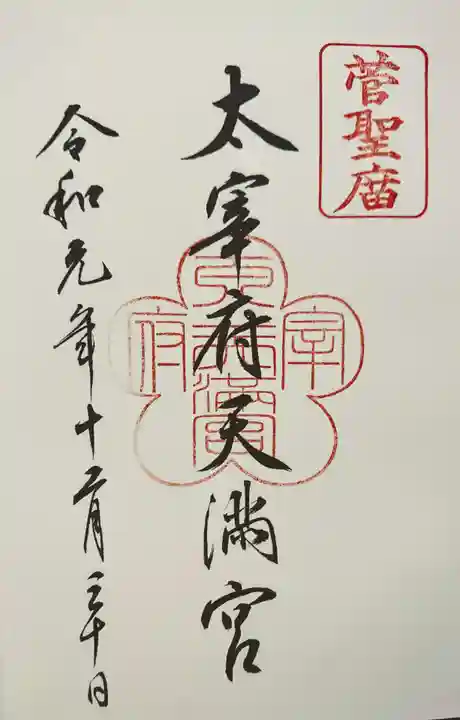 菅聖庿
太宰府天満宮
令和元年十二月三十日